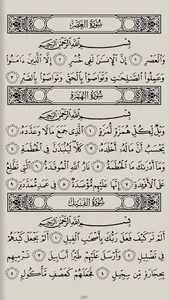 سُورَةُ العَصْرِ
بِسْمِ اللَّهِ الرَّحْمَٰنِ الرَّحِيمِ
وَالْعَصْرِ ١ إِنَّ الْإِنسَٰنَ لَفِى خُسْرٍ ٢ إِلَّا الَّذِينَ ءَامَنُوا
وَعَمِلُوا الصَّٰلِحَٰتِ وَتَوَاصَوْا بِالْحَقِّ وَتَوَاصَوْا بِالصَّبْرِ ٣
سُورَةُ الهُمَزَةِ
بِسْمِ اللَّهِ الرَّحْمَٰنِ الرَّحِيمِ
وَيْلٌ لِّكُلِّ هُمَزَةٍ لُّمَزَةٍ ١ الَّذِى جَمَعَ مَالًا وَعَدَّدَهُ ٢
يَحْسَبُ أَنَّ مَالَهُ أَخْلَدَهُ ٣ كَلَّا لَيُنبَذَنَّ فِى الْحُطَمَةِ ٤
وَمَا أَدْرَىٰكَ مَا الْحُطَمَةُ ٥ نَارُ اللَّهِ الْمُوقَدَةُ ٦ الَّتِى تَطَّلِعُ
عَلَى الْأَفْـِٔدَةِ ٧ إِنَّهَا عَلَيْهِم مُّؤْصَدَةٌ ٨ فِى عَمَدٍ مُّمَدَّدَةٍ ٩
سُورَةُ الفِيلِ
بِسْمِ اللَّهِ الرَّحْمَٰنِ الرَّحِيمِ
أَلَمْ تَرَ كَيْفَ فَعَلَ رَبُّكَ بِأَصْحَٰبِ الْفِيلِ ١ أَلَمْ يَجْعَلْ كَيْدَهُمْ
فِى تَضْلِيلٍ ٢ وَأَرْسَلَ عَلَيْهِمْ طَيْرًا أَبَابِيلَ ٣ تَرْمِيهِم
بِحِجَارَةٍ مِّن سِجِّيلٍ ٤ فَجَعَلَهُمْ كَعَصْفٍ مَّأْكُولٍ ٥
٦٠١